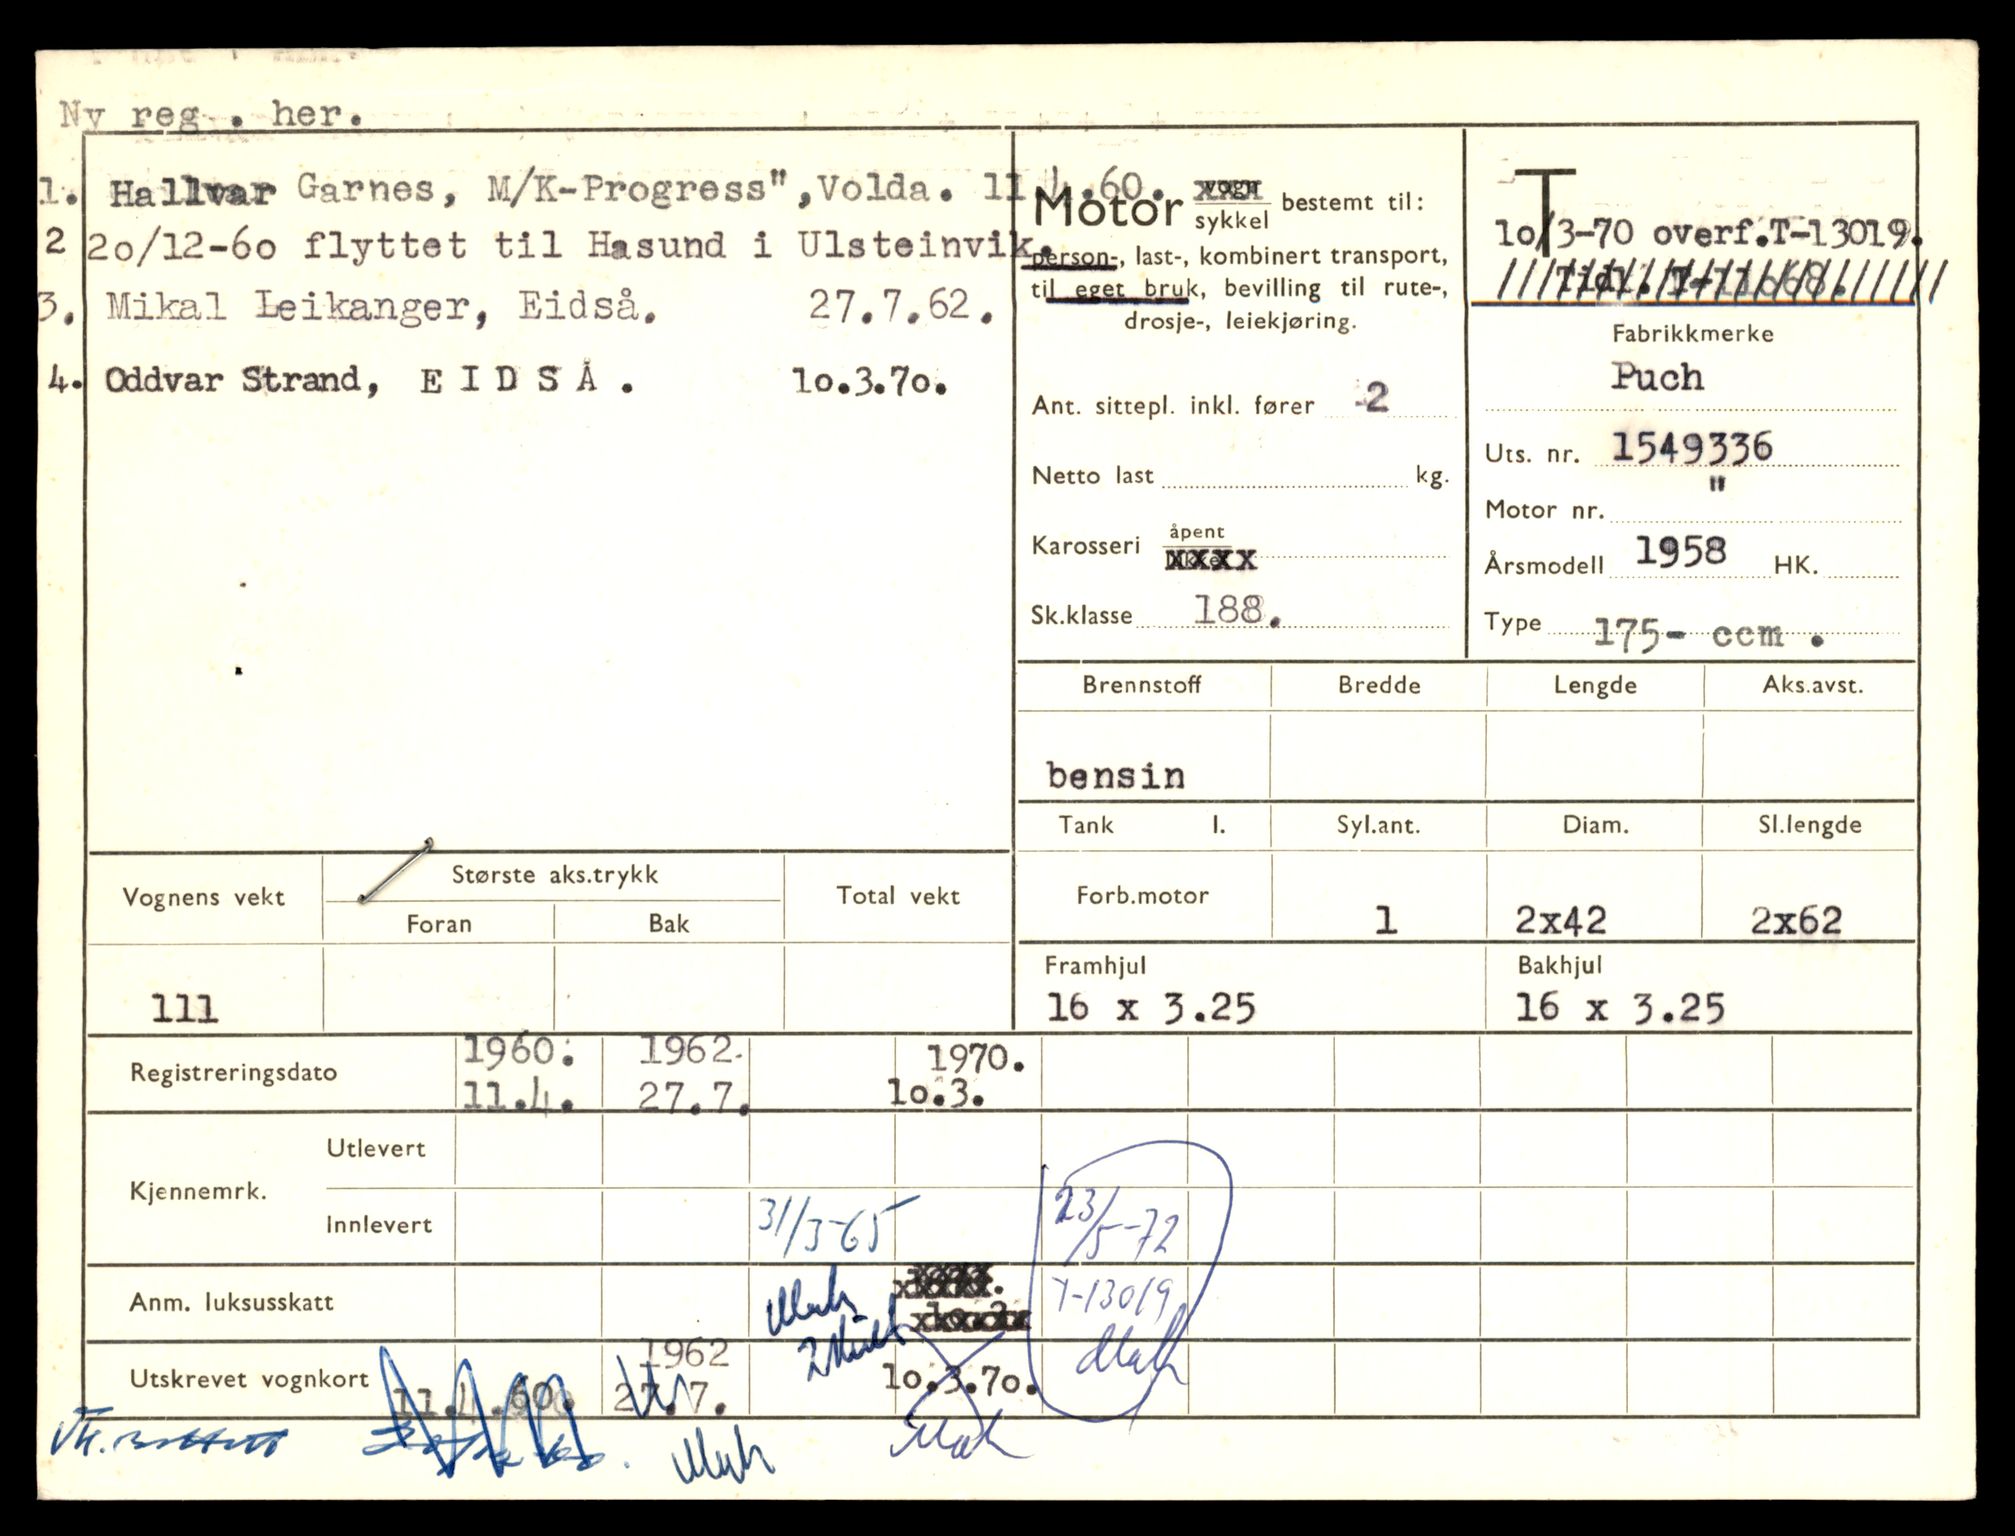 Ny reg . her.
1. Hallvar Garnes, M/K-Progress", Volda. 11.4.60.
2 20/12-60 flyttet til Hasund i Ulsteinvik.
3. Mikal Leikanger, Eidså. 27.7.62.
4. Oddvar Strand, E I D S Å . 10.3.70.
Motor vogn sykkel bestemt til:
person-, last-, kombinert transport,
til eget bruk, bevilling til rute-,
drosje-, leiekjøring.
Ant. sittepl. inkl. fører 2
Netto last kg.
Karosseri åpent
Sk.klasse 188.
T
10/3-70 overf.T-13019.
Tidl. T-11668.
Fabrikkmerke
Puch
Uts. nr. 1549336
Motor nr. "
Årsmodell 1958 HK.
Type 175- ccm .
Brennstoff Bredde Lengde Aks.avst.
bensin
Tank l. Syl.ant. Diam. Sl.lengde
Forb.motor 1 2x42 2x62
Framhjul Bakhjul
16 x 3.25 16 x 3.25
Vognens vekt Største aks.trykk Total vekt
Foran Bak
111
Registreringsdato 1960. 1962. 1970.
11.4. 27.7. 10.3.
Kjennemrk. Utlevert
Innlevert 31/3-65 23/5-72
Anm. luksusskatt T-13019
Utskrevet vognkort 11.4.60. 1962 27.7. 10.3.70.